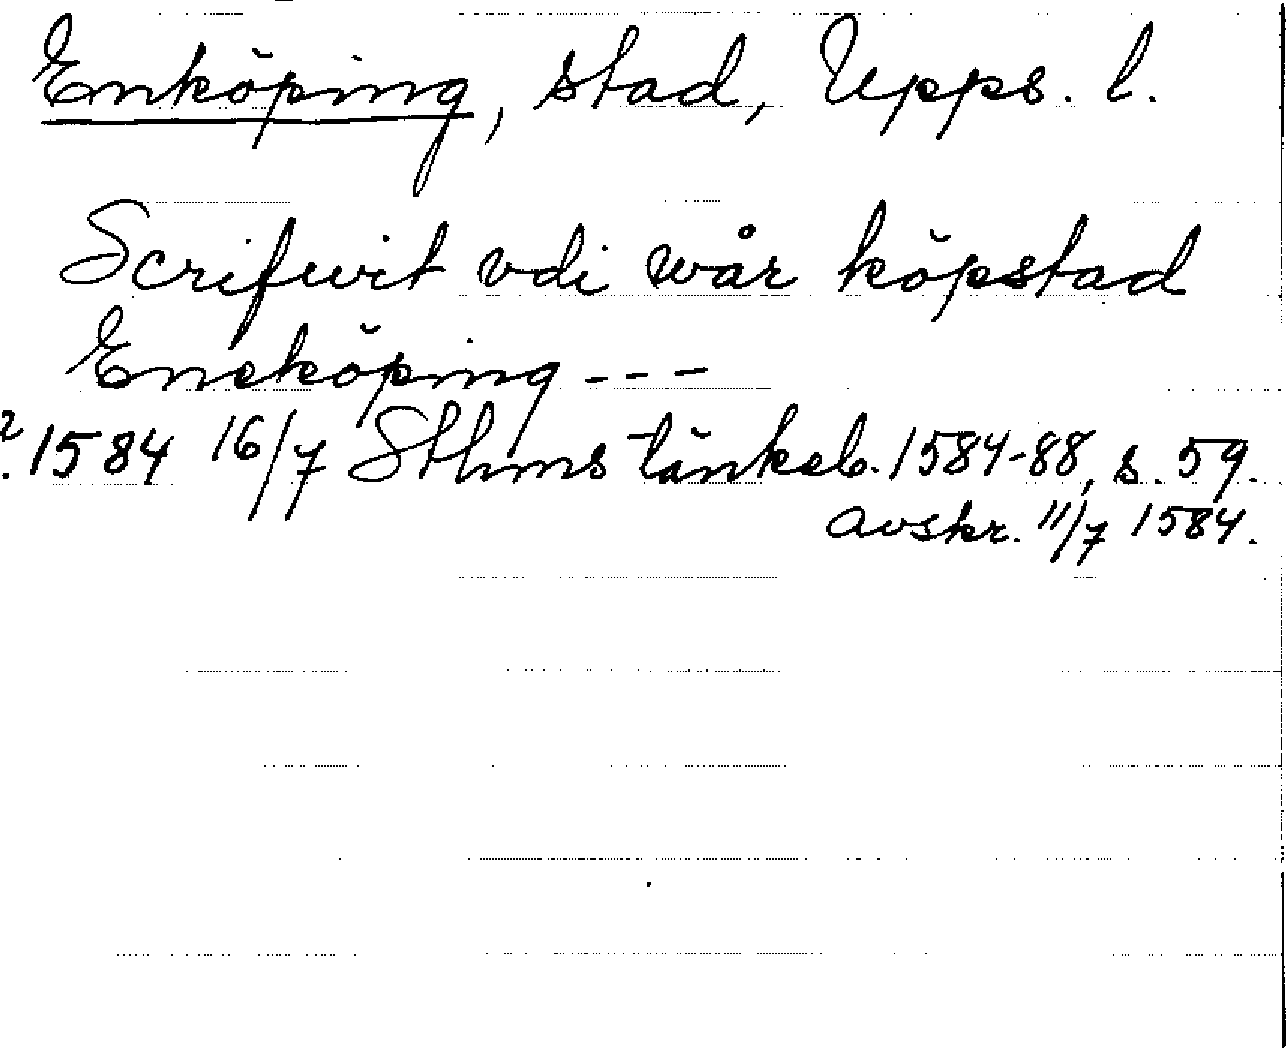 Enköping, stad, Upps. l.
Scrifwit vdi wår köpstad
Eneköping - - -
? 1584 16/7 Sthms tänkeb. 1584-88, s. 59.
avskr. 11/7 1584.